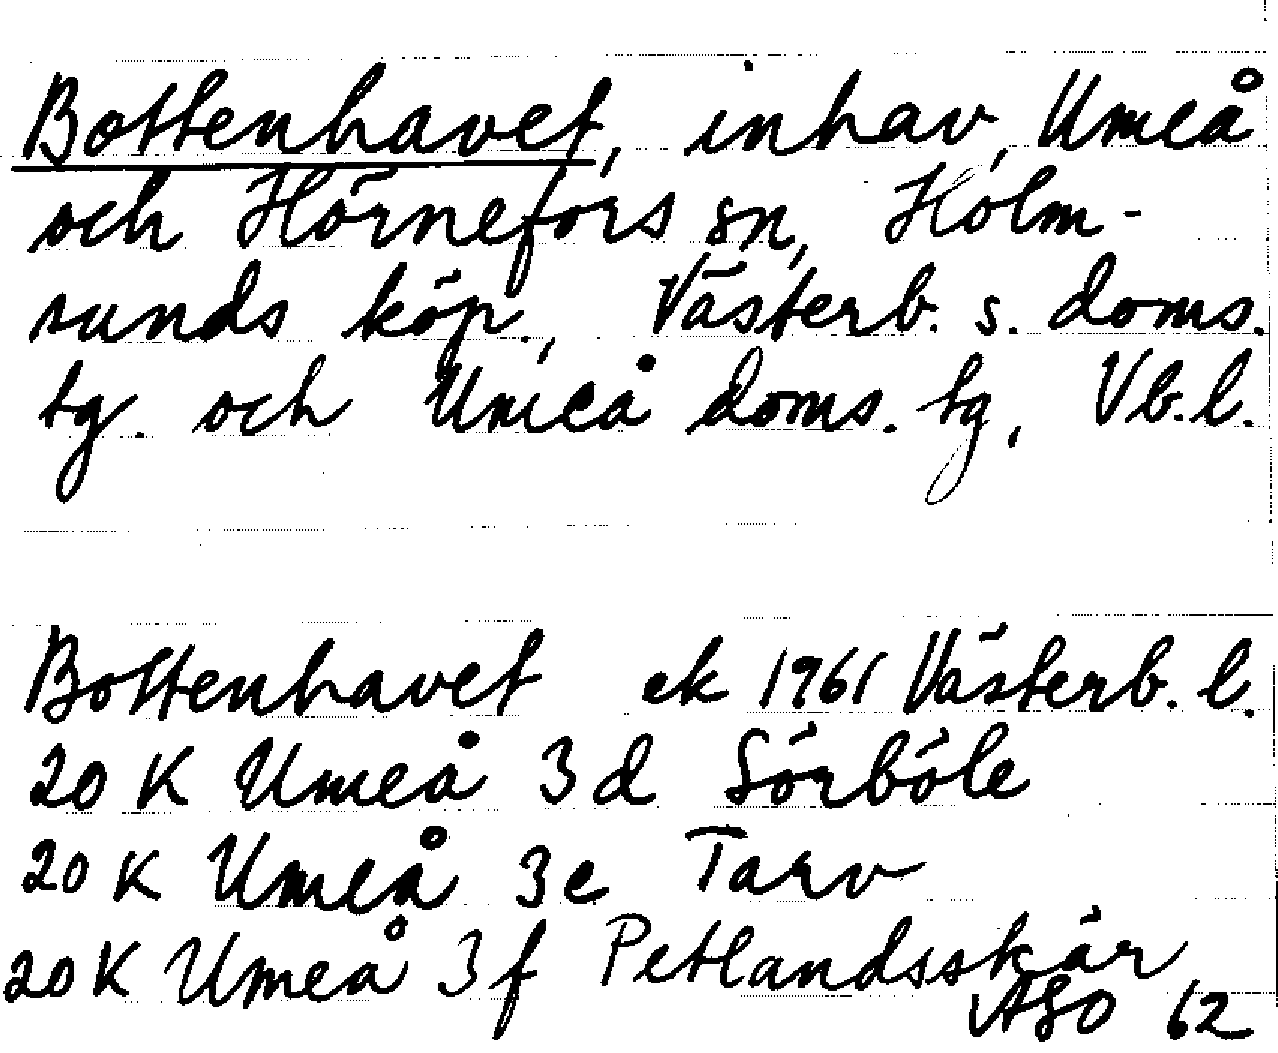 Bottenhavet, inhav, Umeå
och Hörnefors sn, Holm-
sunds köp., Västerb. s. doms.
tg. och Umeå doms. tg, Vb. l.
Bottenhavet ek 1961 Västerb. l.
20 K Umeå 3 d Sörböle
20 K Umeå 3 e Tarv
20 K Umeå 3 f Petlandsskär
ASO 62